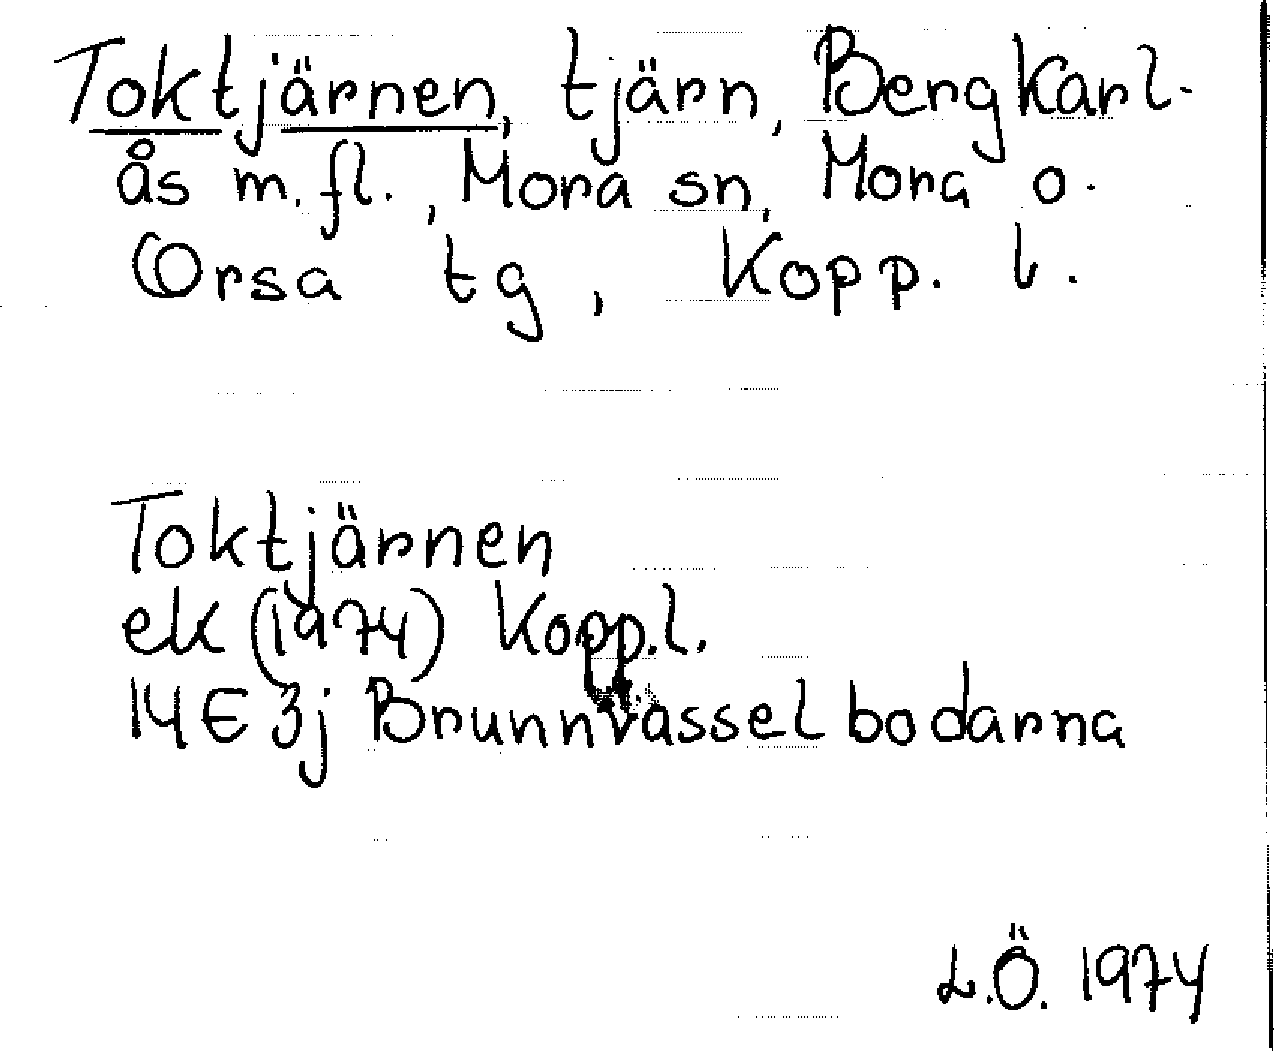 Toktjärnen, tjärn, Bengkarl-
ås m.fl., Mora sn, Mora o.
Orsa tg, Kopp. l.
Toktjärnen
ek (1974) Kopp.l.
14E 3j Brunnvasselbodarna
L.Ö. 1974